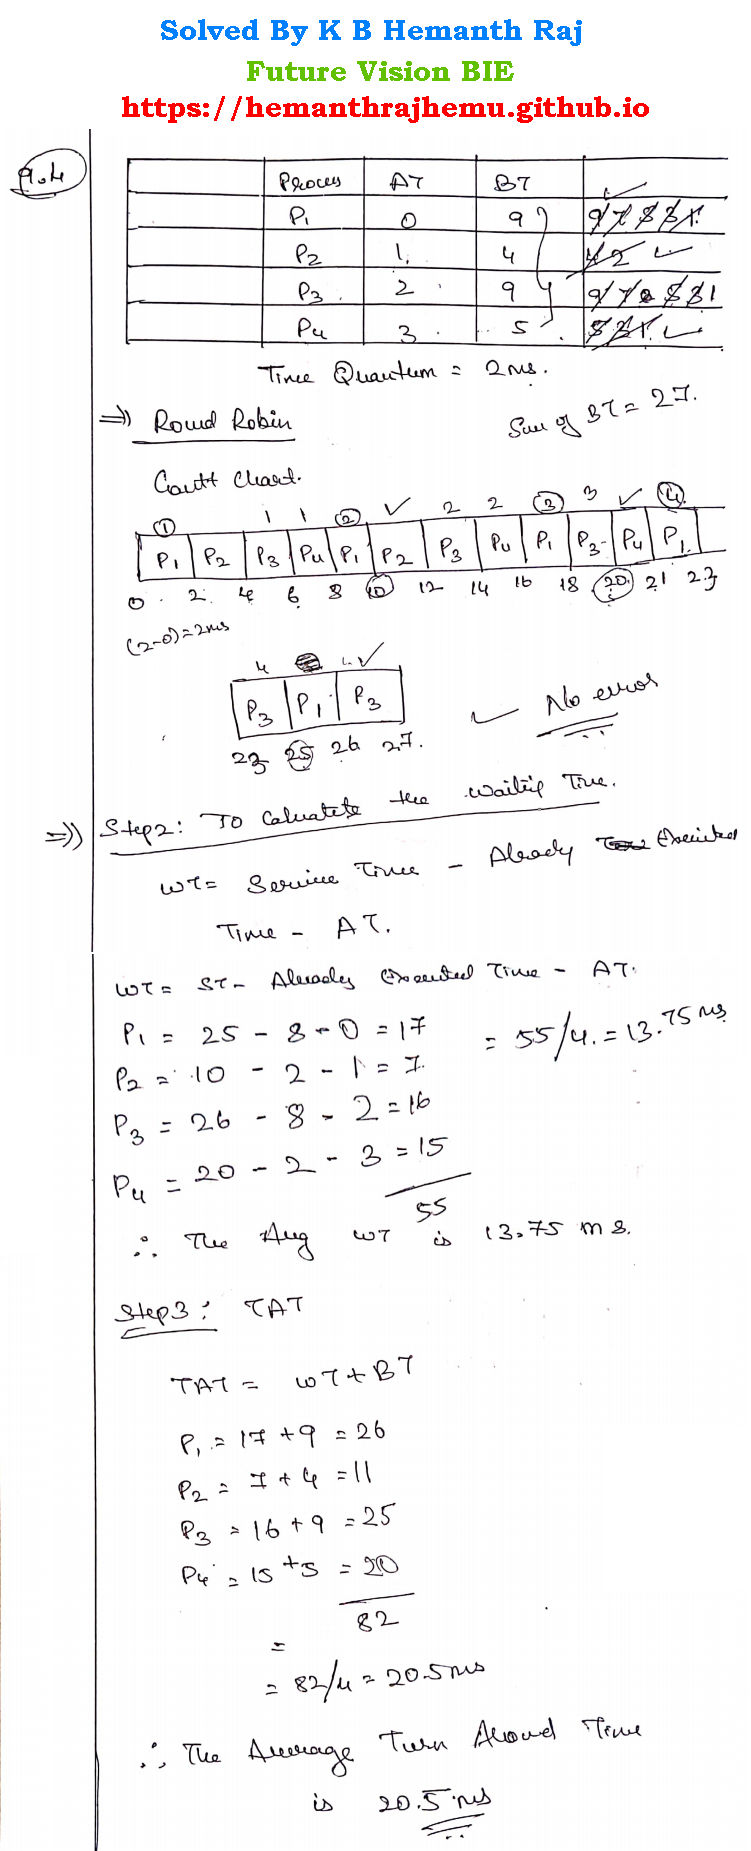 Solved By K B Hemanth Raj
Future Vision BIE
https://hemanthrajhemu.github.io
Process AT BT
P1 0 9 9 7 5 3 1
P2 1. 4 4 2
P3 2 9 9 7 5 3 1
P4 3 5 5 3 1
Time Quantum = 2ms.
=> Round Robin Sum of BT = 27.
Gantt Chart.
1 1 1 2 ✓ 2 2 3 3 ✓ 4
P1 P2 P3 P4 P1 P2 P3 P4 P1 P3 P4 P1
0 2 4 6 8 10 12 14 16 18 20 21 23
(2-0)=2ms
4 ✓
P3 P1 P3
23 25 26 27.
✓ No error
=> Step2: To Caluatete the waitig Time.
WT = Service Time - Already Executed
Time - AT.
WT = ST - Already Executed Time - AT.
P1 = 25 - 8 - 0 = 17 = 55/4. = 13.75 ms
P2 = 10 - 2 - 1 = 7.
P3 = 26 - 8 - 2 = 16
P4 = 20 - 2 - 3 = 15
55
∴ The Avg WT is 13.75 ms.
Step3: TAT
TAT = WT + BT
P1 = 17 + 9 = 26
P2 = 7 + 4 = 11
P3 = 16 + 9 = 25
P4 = 15 + 5 = 20
82
=
= 82/4 = 20.5 ms
∴ The Average Turn Aroud Time
is 20.5 ms